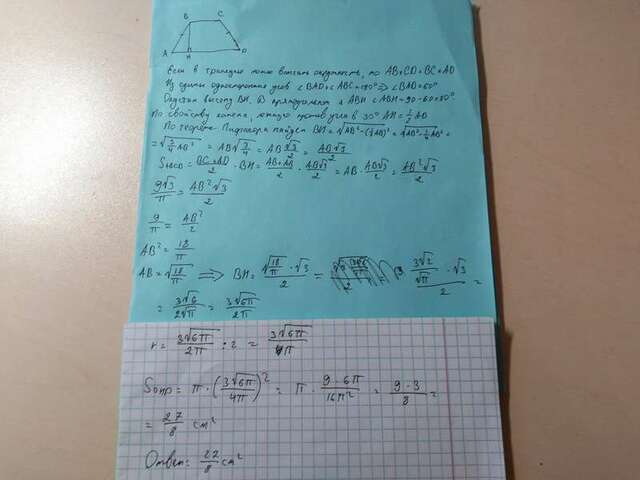 B C
A H D
Если в трапецию можно вписать окружность, то AB+CD=BC+AD
Из суммы односторонних углов ∠BAD+∠ABC=180° ⟹ ∠BAD=60°
высоту BH. В прямоугольном △ABH ∠ABH=90-60=30°
По свойству катета, против угла в 30° AH=1/2 AB
По теореме Пифагора найдём BH=√(AB²-(1/2AB)²)=√(AB²-1/4AB²)=
=√(3/4 AB²) = AB√(3/4) = AB √3/2 = AB√3/2
SABCD = (BC+AD)/2 · BH = (AB+AB)/2 · AB√3/2 = AB · AB√3/2 = AB²√3/2
9√3/π = AB²√3/2
9/π = AB²/2
AB² = 18/π
AB = √(18/π) ⟹ BH = (√(18/π) · √3)/2 = (3√2/√π · √3)/2 =
= 3√6/2√π = 3√6π/2π
r = 3√6π/2π : 2 = 3√6π/4π
Sокр = π · (3√6π/4π)² = π · 9·6π/16π² = 9·3/8 =
= 27/8 см²
Ответ: 27/8 см²